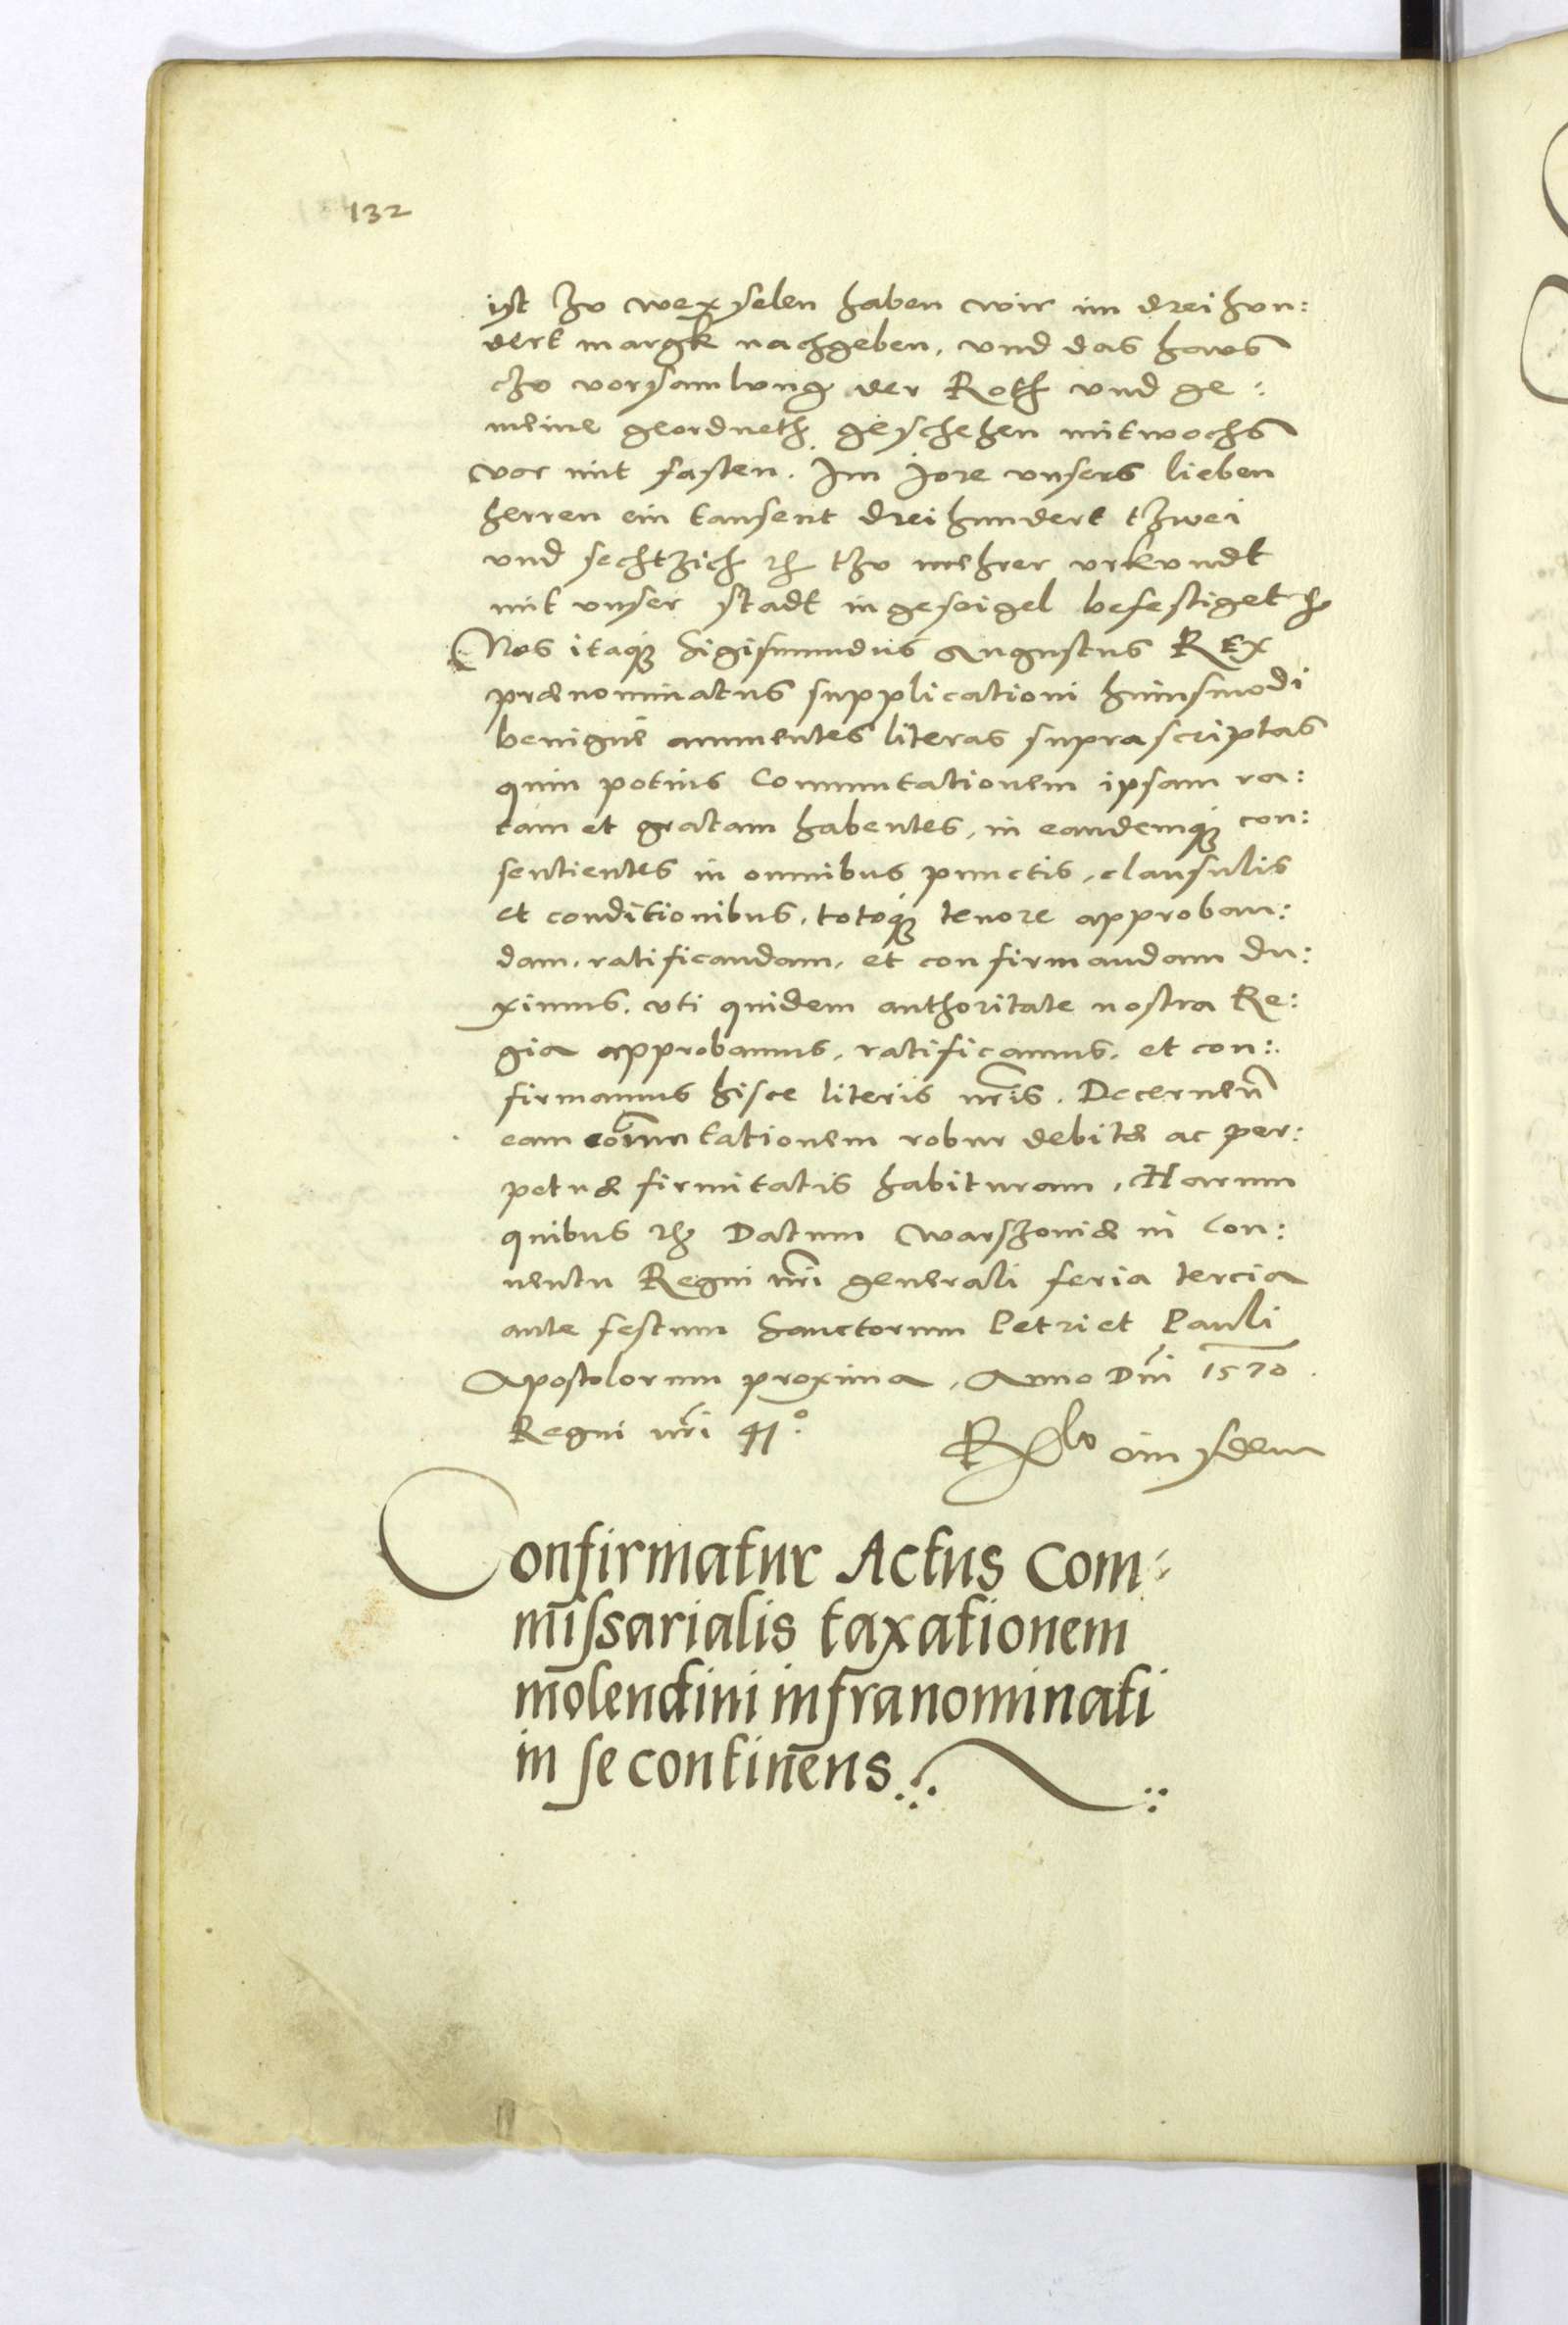 132
ist tzu wexselen haben wir im dreihun:
dert margk nachgeben, vnd das haus
tzu vorsamlung der Roth vnd ge:
meine geordneth, geschehen mitwochs
vor mit fasten. Im Jore vnsers lieben
herren ein tausent dreihundert tzwei
vnd sechtzich tzu mehrer vrkundt
mit vnser stadt ingeseigel befestiget
Nos itaque Sigismundus Augustus REX
prænominatus supplicationi huiusmodi
benigne annuentes literas suprascriptas
quin potius Commutationem ipsam ra:
tam et gratam habentes, in eandemque con:
sentientes in omnibus punctis, clausulis
et conditionibus, totoque tenore approban:
dam, ratificandam, et confirmandam du:
ximus, vti quidem authoritate nostra Re:
gia approbamus, ratificamus, et con:
firmamus hisce literis nris. Decernen
eam commutationem robur debitæ ac per:
petuæ firmitatis habituram, Harum
quibus Datum Warszoviæ in Con:
uentu Regni nri generali feria tercia
ante festum Sanctorum Petri et Pauli
Apostolorum proxima, Anno Dni 1570.
Regni nri 41º.
Confirmatur Actus Com=
missarialis taxationem
molendini infranominati
in se continens